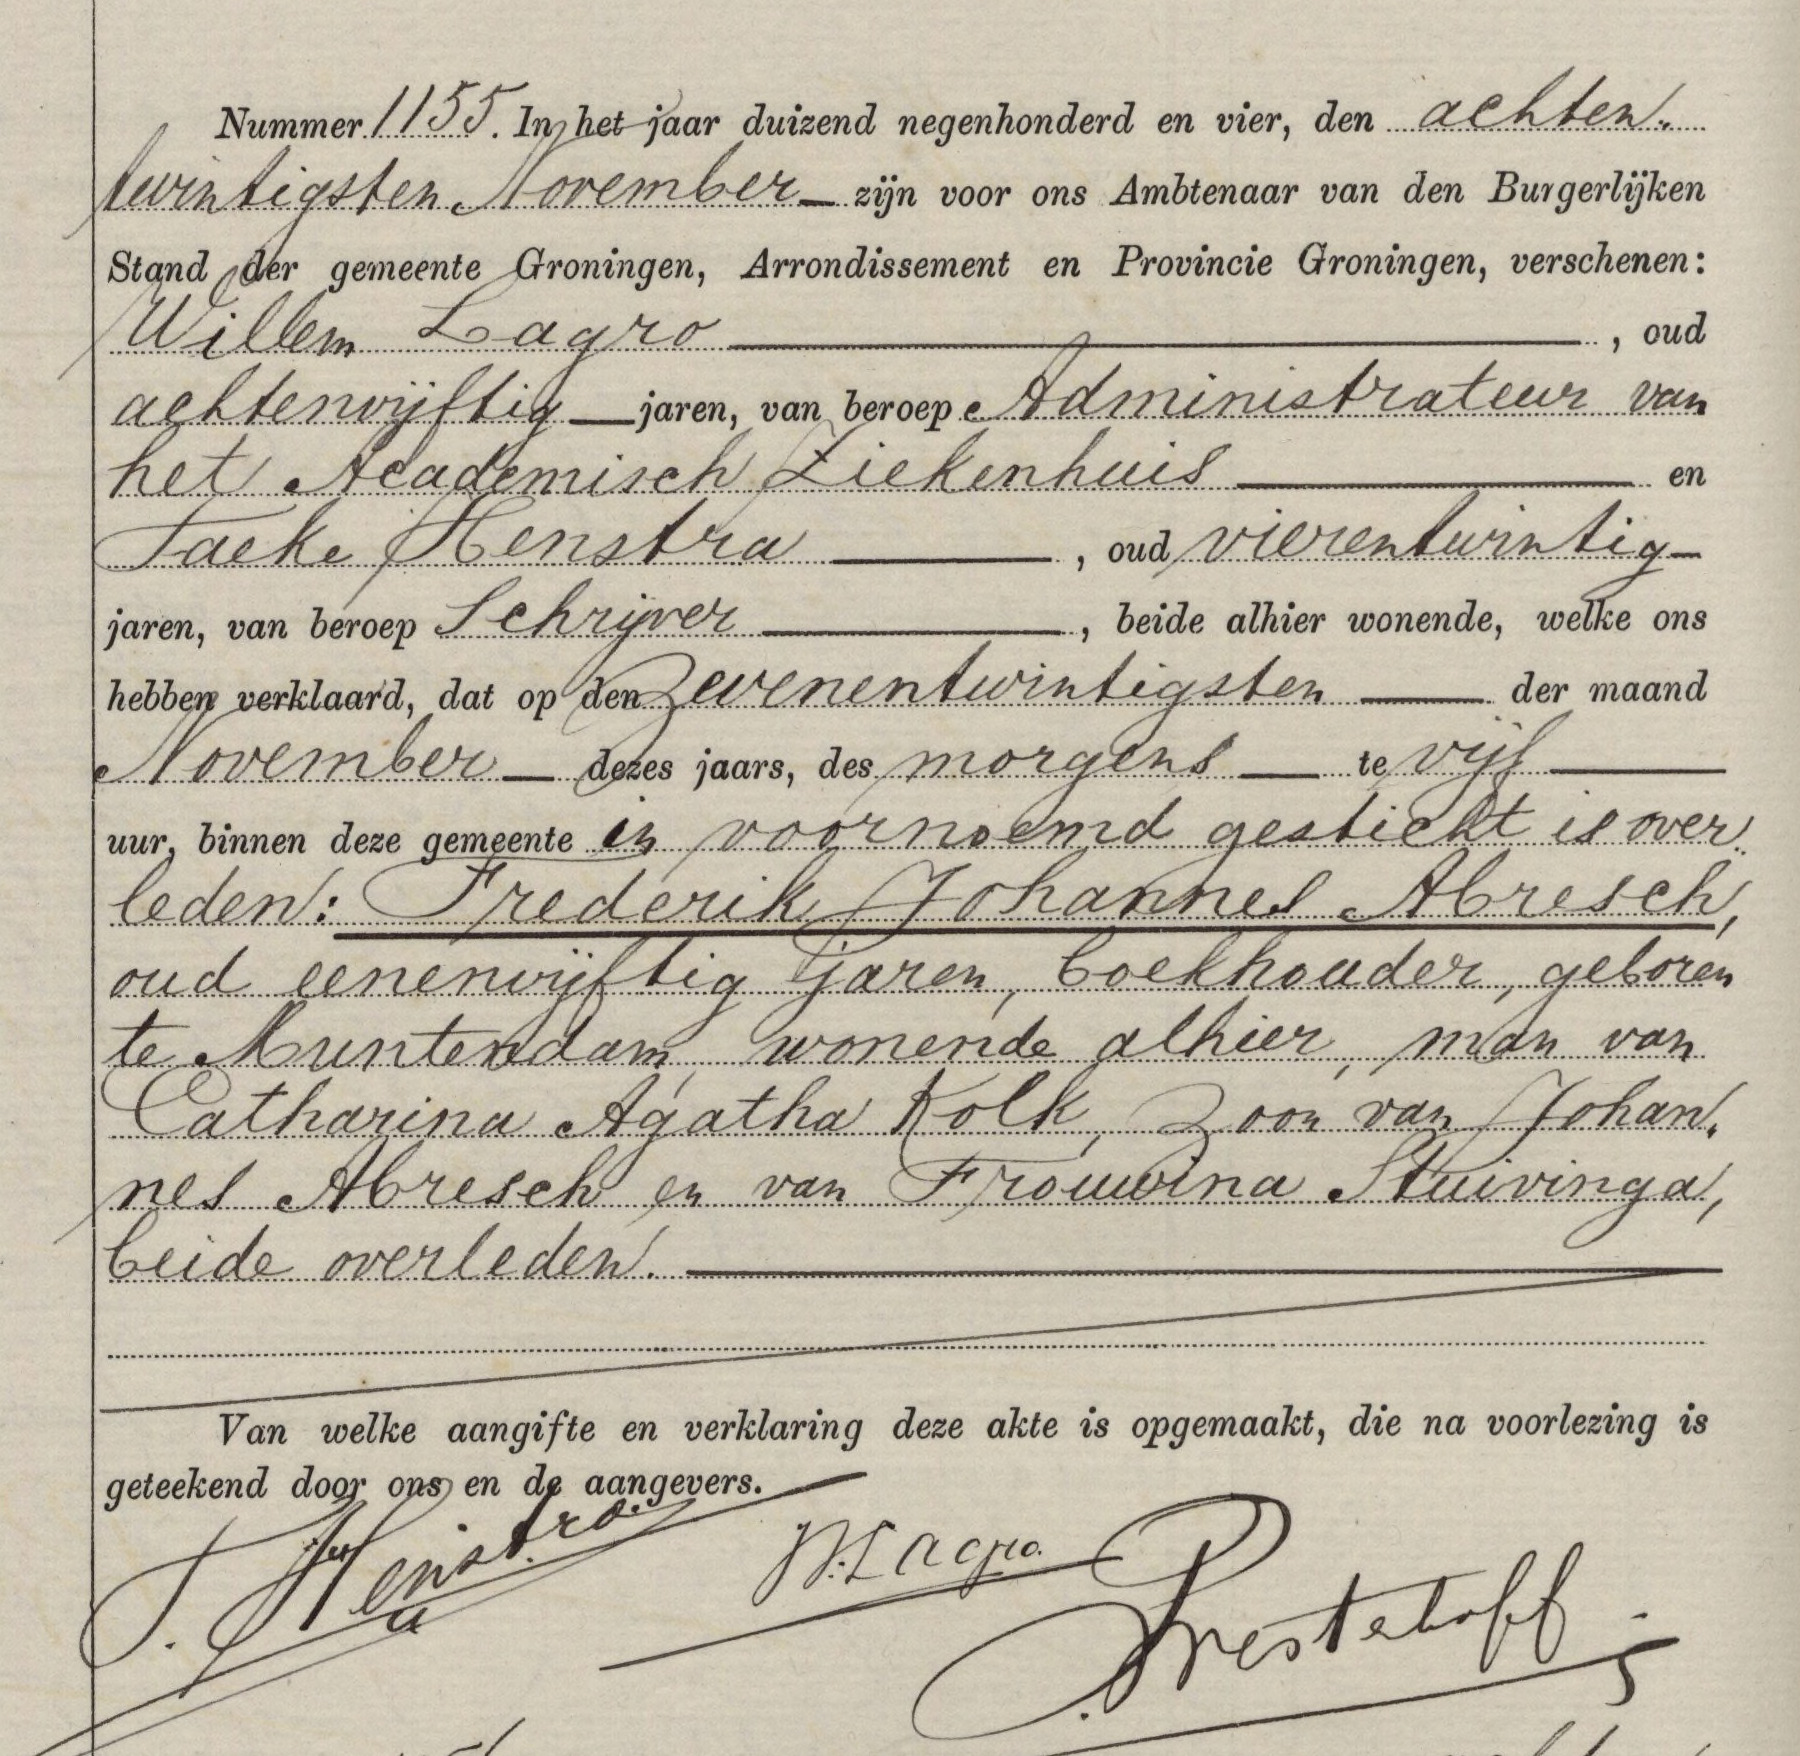 Nummer 1155. In het jaar duizend negenhonderd en vier, den achten.
twintigsten November zijn voor ons Ambtenaar van den Burgerlijken
Stand der gemeente Groningen, Arrondissement en Provincie Groningen, verschenen:
Willem Lagro, oud
achtenvijftig jaren, van beroep Administrateur van
het Academisch Ziekenhuis en
Taeke Henstra, oud vierentwintig
jaren, van beroep Schrijver, beide alhier wonende, welke ons
hebben verklaard, dat op den zevenentwintigsten der maand
November dezes jaars, des morgens te vijf
uur, binnen deze gemeente in voornoemd gesticht is over
leden: Frederik Johannes Abresch,
oud eenenvijftig jaren, boekhouder, geboren
te Muntendam, wonende alhier, man van
Catharina Agatha Kolk, zoon van Johan.
nes Abresch en van Frouwina Stuivinga,
beide overleden.
Van welke aangifte en verklaring deze akte is opgemaakt, die na voorlezing is
geteekend door ons en de aangevers.
T. Henstra
W. Lagro.